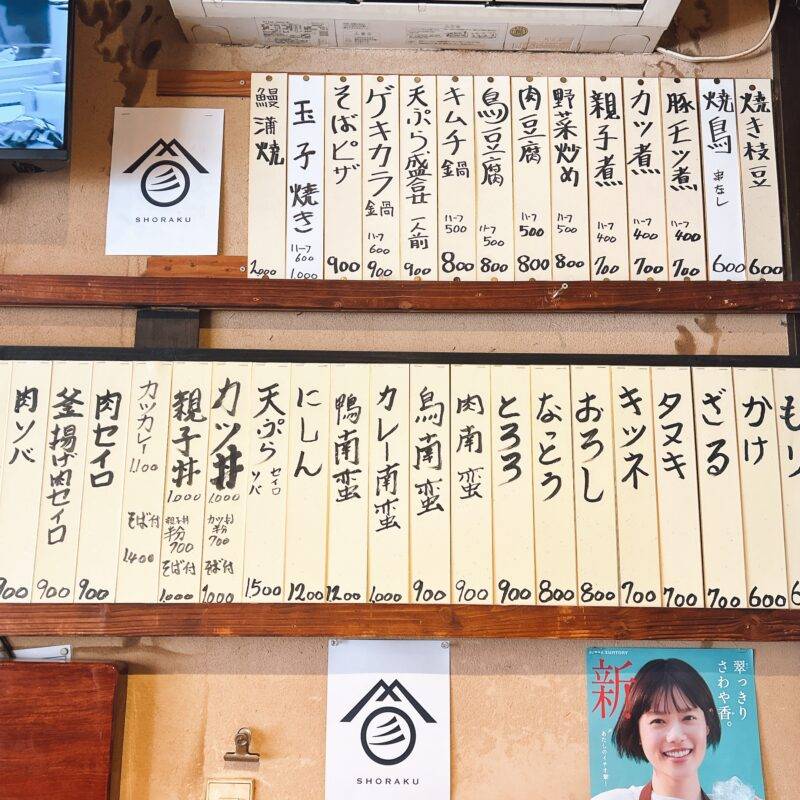 焼き枝豆 600
焼鳥 串なし 600
豚モツ煮 ハーフ 400 700
カツ煮 ハーフ 400 700
親子煮 ハーフ 400 700
野菜炒め ハーフ 500 800
肉豆腐 ハーフ 500 800
鳥豆腐 ハーフ 500 800
キムチ鍋 ハーフ 500 800
天ぷら盛合せ 一人前 900
ゲキカラ鍋 ハーフ 600 900
そばピザ 900
玉子焼き ハーフ 600 1,000
鰻蒲焼 2,000
SHORAKU
かけ 600
ざる 700
タヌキ 700
キツネ 700
おろし 800
なっとう 800
とろろ 900
肉南蛮 900
鳥南蛮 900
カレー南蛮 1,000
鴨南蛮 1,200
にしん 1200
天ぷら セイロ ソバ 1,500
カツ丼 1,000 カツ丼 半分 700 そば付 1,000
親子丼 1,000 親子丼 半分 700 そば付 1,000
カツカレー 1,100 そば付 1,400
肉セイロ 900
釜揚げ肉セイロ 900
肉ソバ 900
SHORAKU
SUNTORY
新
翠っきり
さわや香。